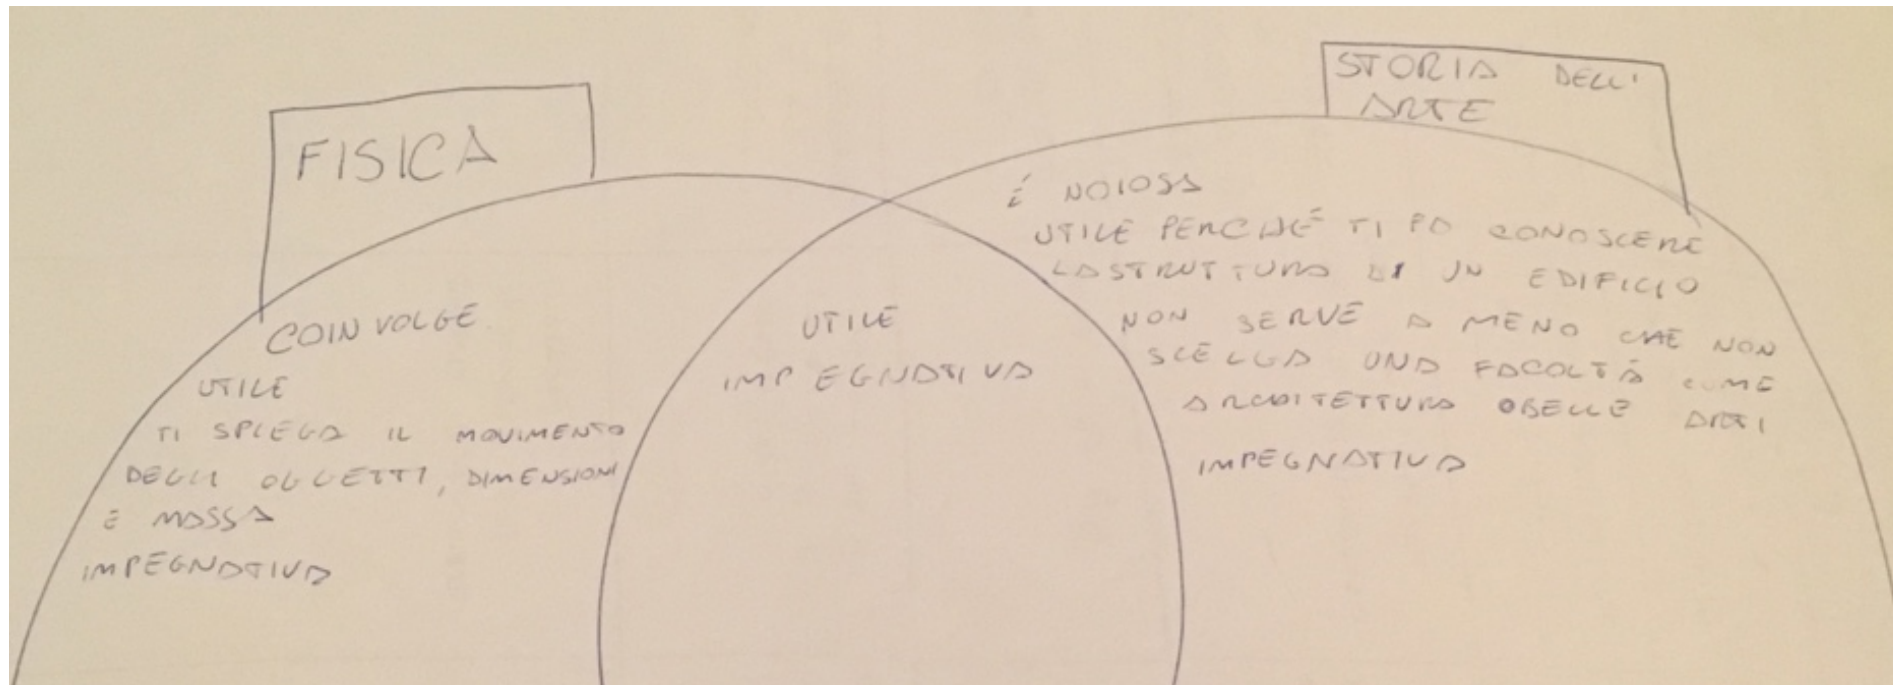 FISICA
COINVOLGE
UTILE
TI SPIEGA IL MOVIMENTO
DEGLI OGGETTI, DIMENSIONI
E MASSA
IMPEGNATIVA
UTILE
IMPEGNATIVA
STORIA DELL'
ARTE
É NOIOSA
UTILE PERCHÉ TI FA CONOSCERE
LA STRUTTURA DI UN EDIFICIO
NON SERVE A MENO CHE NON
SCELGA UNA FACOLTÀ COME
ARCHITETTURA O BELLE ARTI
IMPEGNATIVA